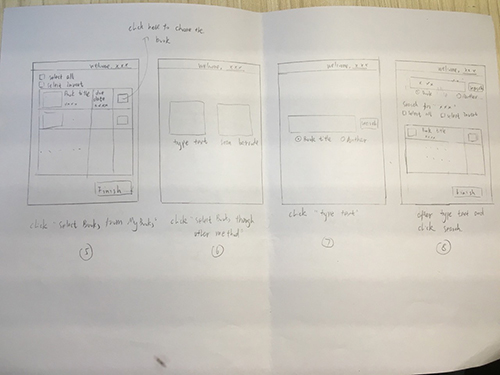 click here to choose the
book
welcome, xxx
select all
select invert
Book title
xxxx
due
date
xxxx
Finish
click "Select Books from My Books"
5
welcome, xxx
type text
scan barcode
click "Select Books through
other method"
6
welcome, xxx
search
Book title
Author
click "type text"
7
welcome, xxx
xxx
search
Book
Author
Search for "xxx"
Select all
Select Invert
Book title
xxxx
Finish
after type text and
click search
8